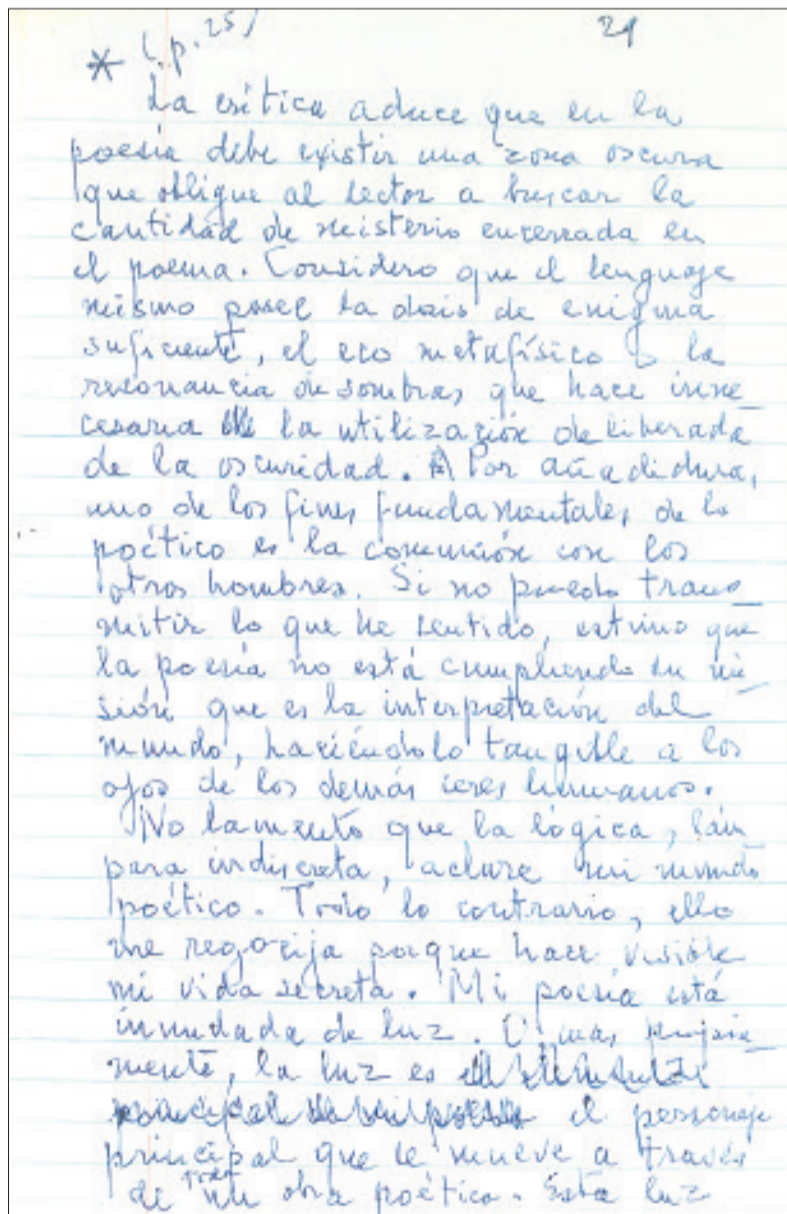 * (p. 25) 21
La crítica aduce que en la
poesía debe existir una zona oscura
que obligue al lector a buscar la
cantidad de misterio encerrada en
el poema. Considero que el lenguaje
mismo posee la dosis de enigma
suficiente, el eco metafísico o la
resonancia de sombras que hace inne-
cesaria la utilización deliberada
de la oscuridad. Por añadidura,
uno de los fines fundamentales de lo
poético es la comunión con los
otros hombres. Si no puedo trans-
mitir lo que he sentido, estimo que
la poesía no está cumpliendo su mi-
sión que es la interpretación del
mundo, haciéndolo tangible a los
ojos de los demás seres humanos.
No lamento que la lógica, lám-
para indiscreta, aclare mi mundo
poético. Todo lo contrario, ello
me regocija porque hace visible
mi vida secreta. Mi poesía está
inundada de luz. O mas propia-
mente, la luz es
el personaje
principal que se mueve a través
de mi obra poética. Esta luz